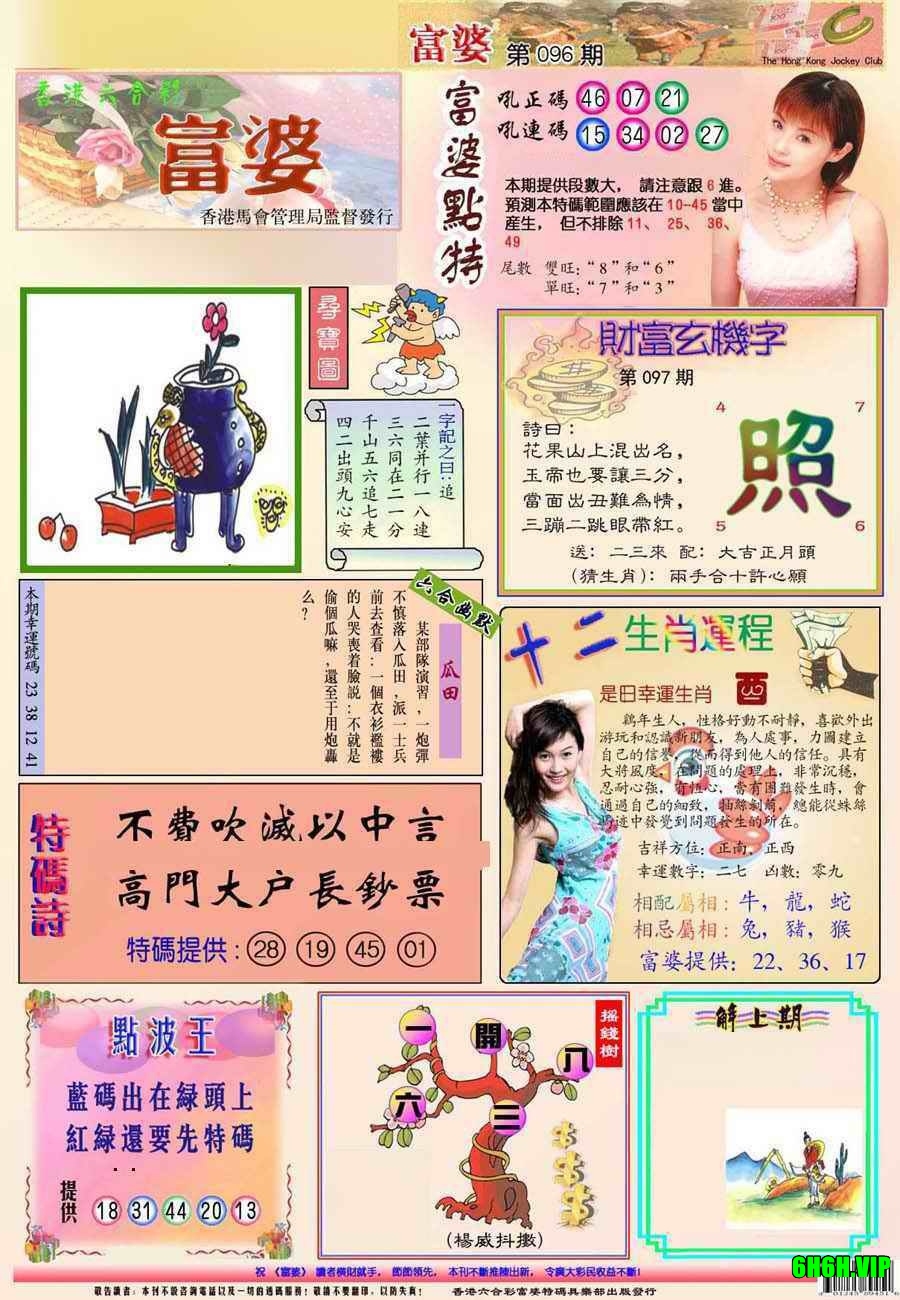 富婆 第096期
The Hong Kong Jockey Club
香港六合彩
富婆
香港馬會管理局監督發行
富婆點特
吼正碼 46 07 21
吼連碼 15 34 02 27
本期提供段數大，請注意跟6進。
預測本特碼範圍應該在10-45當中
產生，但不排除11、25、36、
49
尾數 雙旺：“8”和“6”
單旺：“7”和“3”
尋寶圖
一字記之曰：追
二葉并行一八連
三六同在二一分
千山五六追七走
四二出頭九心安
財富玄機字
第097期
詩曰：
花果山上混出名，
玉帝也要讓三分，
當面出丑難為情，
三蹦二跳眼帶紅。
4 7
照
5 6
送：二三來 配：大吉正月頭
(猜生肖)：兩手合十許心願
本期幸運號碼 23 38 12 41
六合幽默
瓜田
某部隊演習，一炮彈
不慎落入瓜田，派一士兵
前去查看：一個衣衫襤褸
的人哭喪着臉説：不就是
偷個瓜嘛，還至于用炮轟
么？
十二生肖運程
是日幸運生肖 酉
鷄年生人，性格好動不耐靜，喜歡外出
游玩和認識新朋友，為人處事，力圖建立
自己的信譽，從而得到他人的信任。具有
大將風度，在問題的處理上，非常沉穩，
忍耐心強，有恆心，當有困難發生時，會
通過自己的細致，抽絲剝繭，總能從蛛絲
馬迹中發覺到問題發生的所在。
吉祥方位：正南、正西
幸運數字：二七 凶數：零九
相配屬相：牛，龍，蛇
相忌屬相：兔，豬，猴
富婆提供：22、36、17
特碼詩
不費吹滅以中言
高門大户長鈔票
特碼提供：28 19 45 01
點波王
藍碼出在緑頭上
紅緑還要先特碼
提供 18 31 44 20 13
搖錢樹
一 開 八
六 三
(楊威抖擻)
解上期
祝《富婆》讀者橫財就手，節節領先，本刊不斷推陳出新，令廣大彩民收益不斷！
敬告讀者：本刊不設咨詢電話以及一切的透碼服務！敬請不要翻印，以防失真！ 香港六合彩富婆特碼俱樂部出版發行
6H6H.VIP